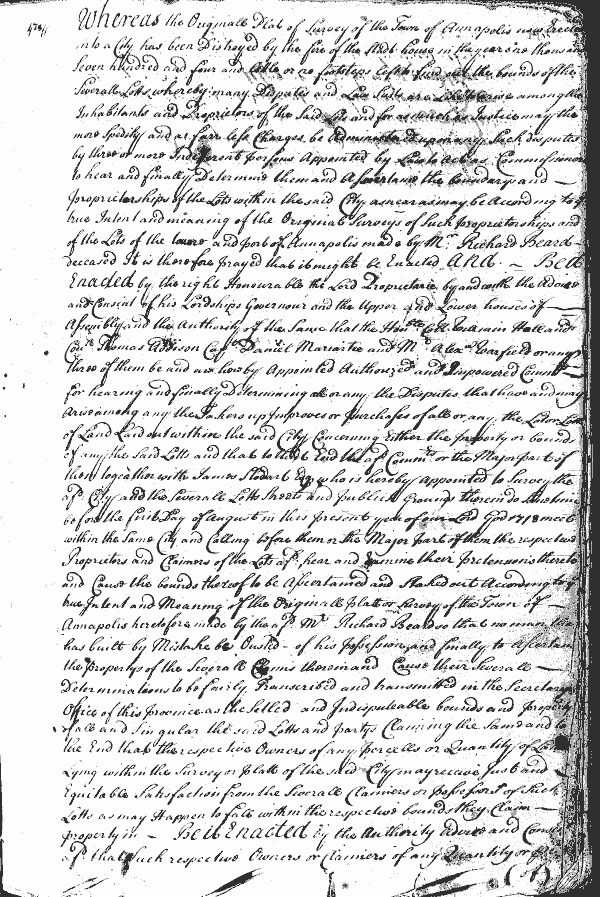 Whereas the Originall Plat of Survey of the Town of Annapolis now Erected
into a City has been Distroyed by the fire of the Stadt house in the year one thousand
Seven hundred and four and little or no footsteps left to find out the bounds of the
Severall Lotts whereby many Disputes and Law Suits are Like to arise among the
Inhabitants and Proprietors of the Said Lots and for as much as Justice may the
more Spedily and at farr less Charges be Administred upon any Such disputes
by three or more Indifferent persons Appointed by Law to Act as Commissioners
to hear and finally Determine them and Ascertaine the boundarys and
proprietorships of the Lots within the said City as near as may be According to the
true Intent and meaning of the Originall Surveys of Such proprietorships and
of the Lots of the towne and port of Annapolis made by Mr. Richard Beard
deceased It is therefore prayed that it might be Enacted AND Be it
Enacted by the right Honourable the Lord Proprietarie by and with the Advice
and Consent of his Lordships Governour and the Upper and Lower houses of
Assembly and the Authority of the Same that the Honble Coll William Holland
Coll Thomas Addison Capt Daniel Mariartee and Mr Alexa Warfield or any
three of them be and are hereby Appointed Authorized and Impowered Commrs
for hearing and finally Determining all or any the Disputes that have and may
Arise among any the Takers up Improvers or purchasers of all or any the Lots or Lotts
of Land Laid out within the said City Concerning Either the property or bounds
of any the Said Lotts and that to that End the afd Commrs or the Major part of
them together with James Stodart Esqr who is hereby appointed to Survey the
afd City and the Severall Lotts Street and publick Grounds therein do sometime
before the first Day of August in this present year of our Lord God 1718 meet
within the Same City and Calling before them or the Major part of them the respective
Proprietors and Claimers of the Lots afd hear and Examine their pretensions thereto
and Cause the bounds thereof to be Ascertained and Staked out According to the
true Intent and Meaning of the Originall platt or Survey of the Town of
Annapolis heretofore made by the afd Mr Richard Beard so that no man who
has built by Mistake be Ousted of his possession and finally to Ascertain
the propertys of the Severall Claims therein and Cause their Severall
Determinations to be fairly Transcribed and transmitted in the Secretarys
Office of this province as the Setled and Indisputeable bounds and property
of all and Singular the said Lotts and partys Claiming the Same and to
the End that the respective Owners of any porcells or Quantity of Land
Lying within the Survey or platt of the said City may receive Just and
Equitable Satisfaction from the Severall Claimers or possessors of Such
Lotts as may Happen to fall within the respective bounds they Claim
property in Be it Enacted by the Authority Advice and Consent
afd that Such respective Owners or Claimers of any Quantity or
(of)